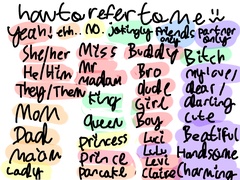 how to refer to me :)
yeah! ehh.. no. jokingly friends only partner only
She/her
He/Him
They/Them
Mom
Dad
ma'am
Lady
Miss
Mr
Madam
King
Queen
Princess
Prince
Pancake
Buddy
Bro
dude
Girl
Boy
Luci
Lulu
Levi
Claire
Bitch
my love/
dear/
darling
cute
Beatiful
Handsome
Charming